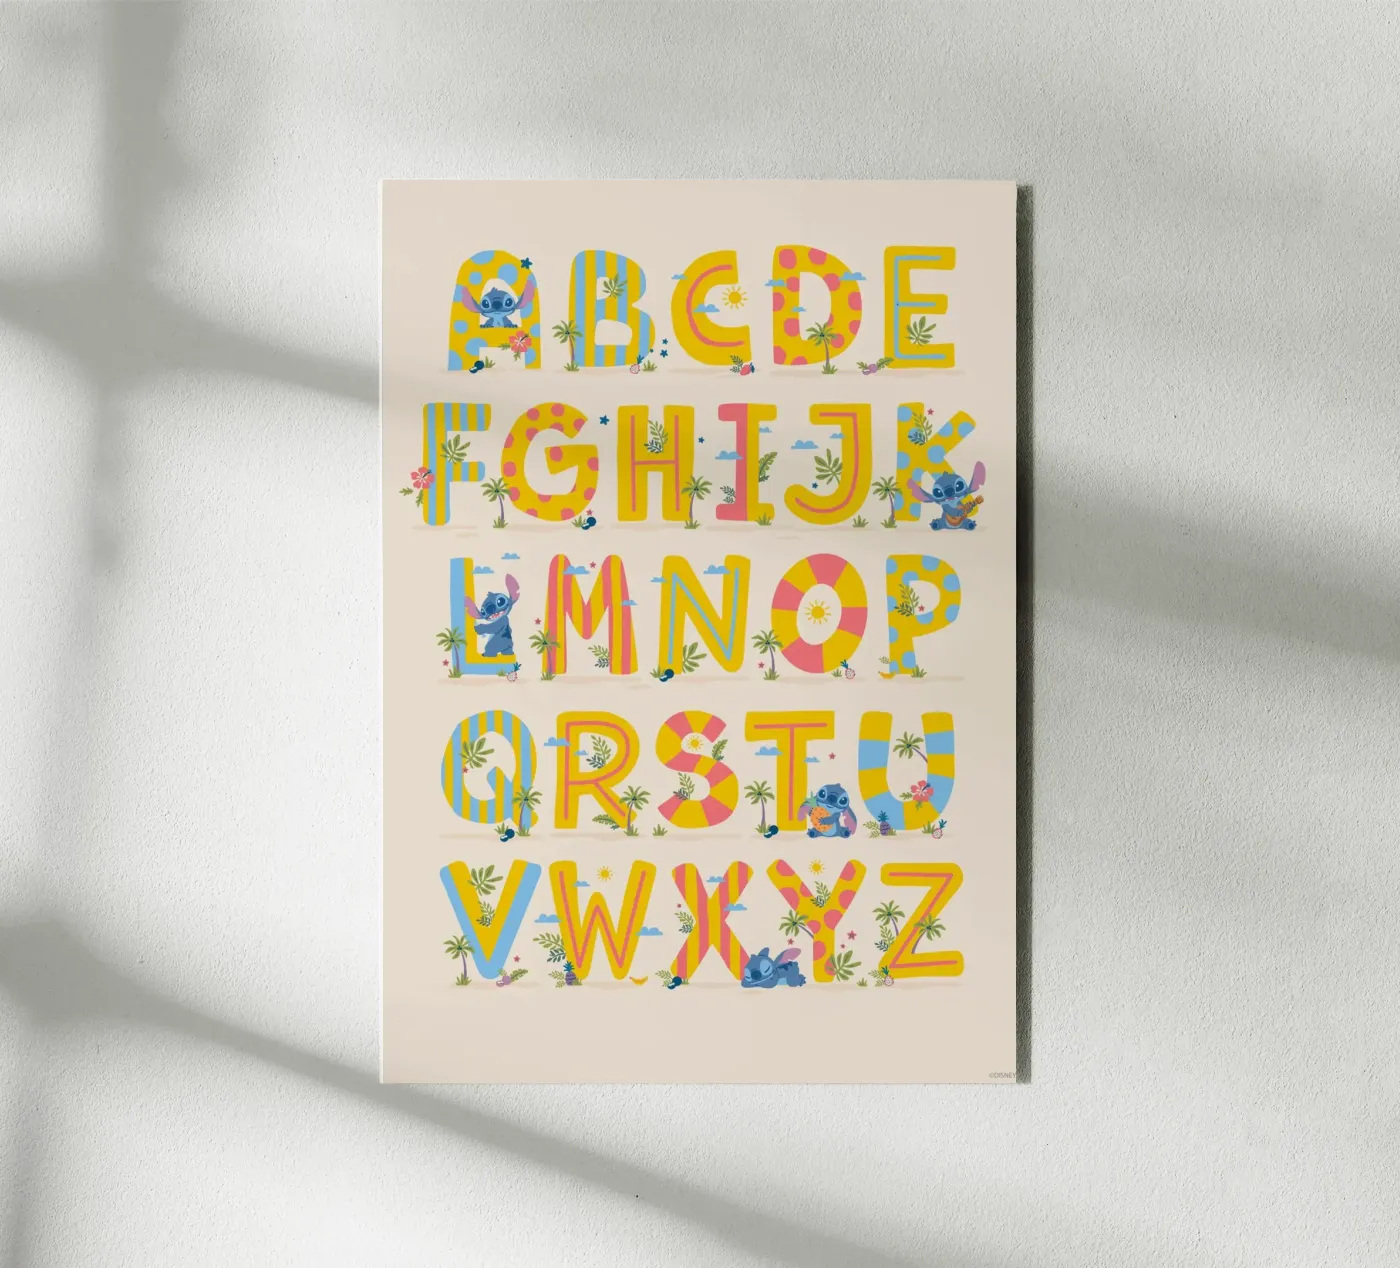 ABCDE
FGHIJK
LMNOP
QRSTU
VWXYZ
©DISNEY